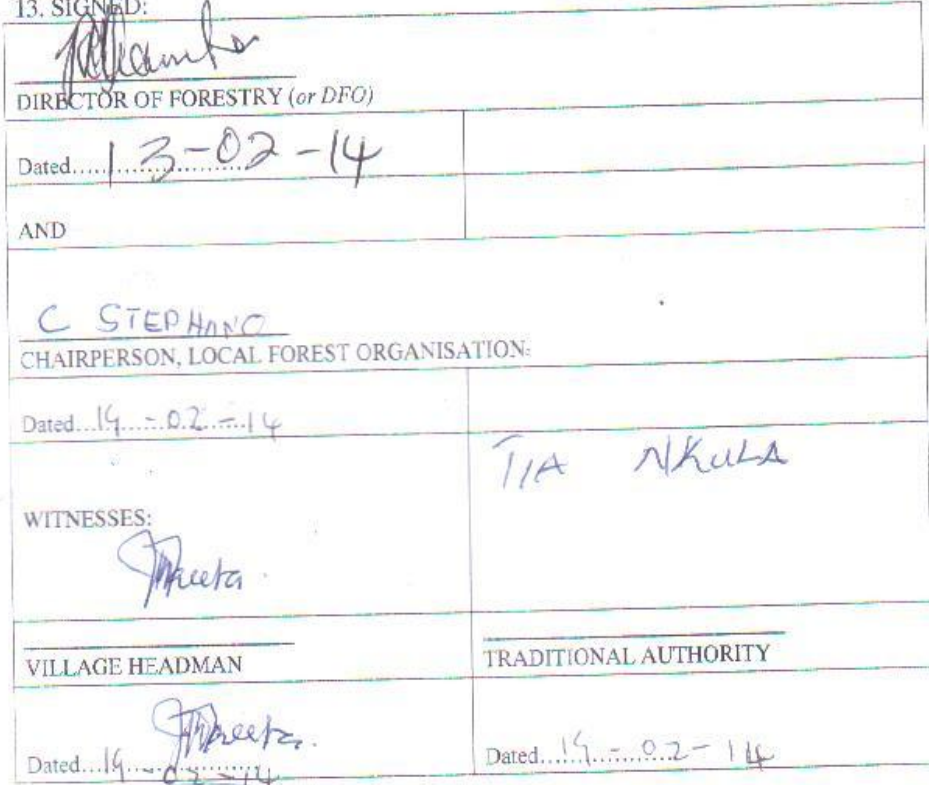 13. SIGNED:
DIRECTOR OF FORESTRY (or DFO)
Dated.....13-02-14
AND
C STEPHANO
CHAIRPERSON, LOCAL FOREST ORGANISATION:
Dated...14...-.02...-14
T/A NKULA
WITNESSES:
VILLAGE HEADMAN
TRADITIONAL AUTHORITY
Dated...14-02-14
Dated....14-02-14